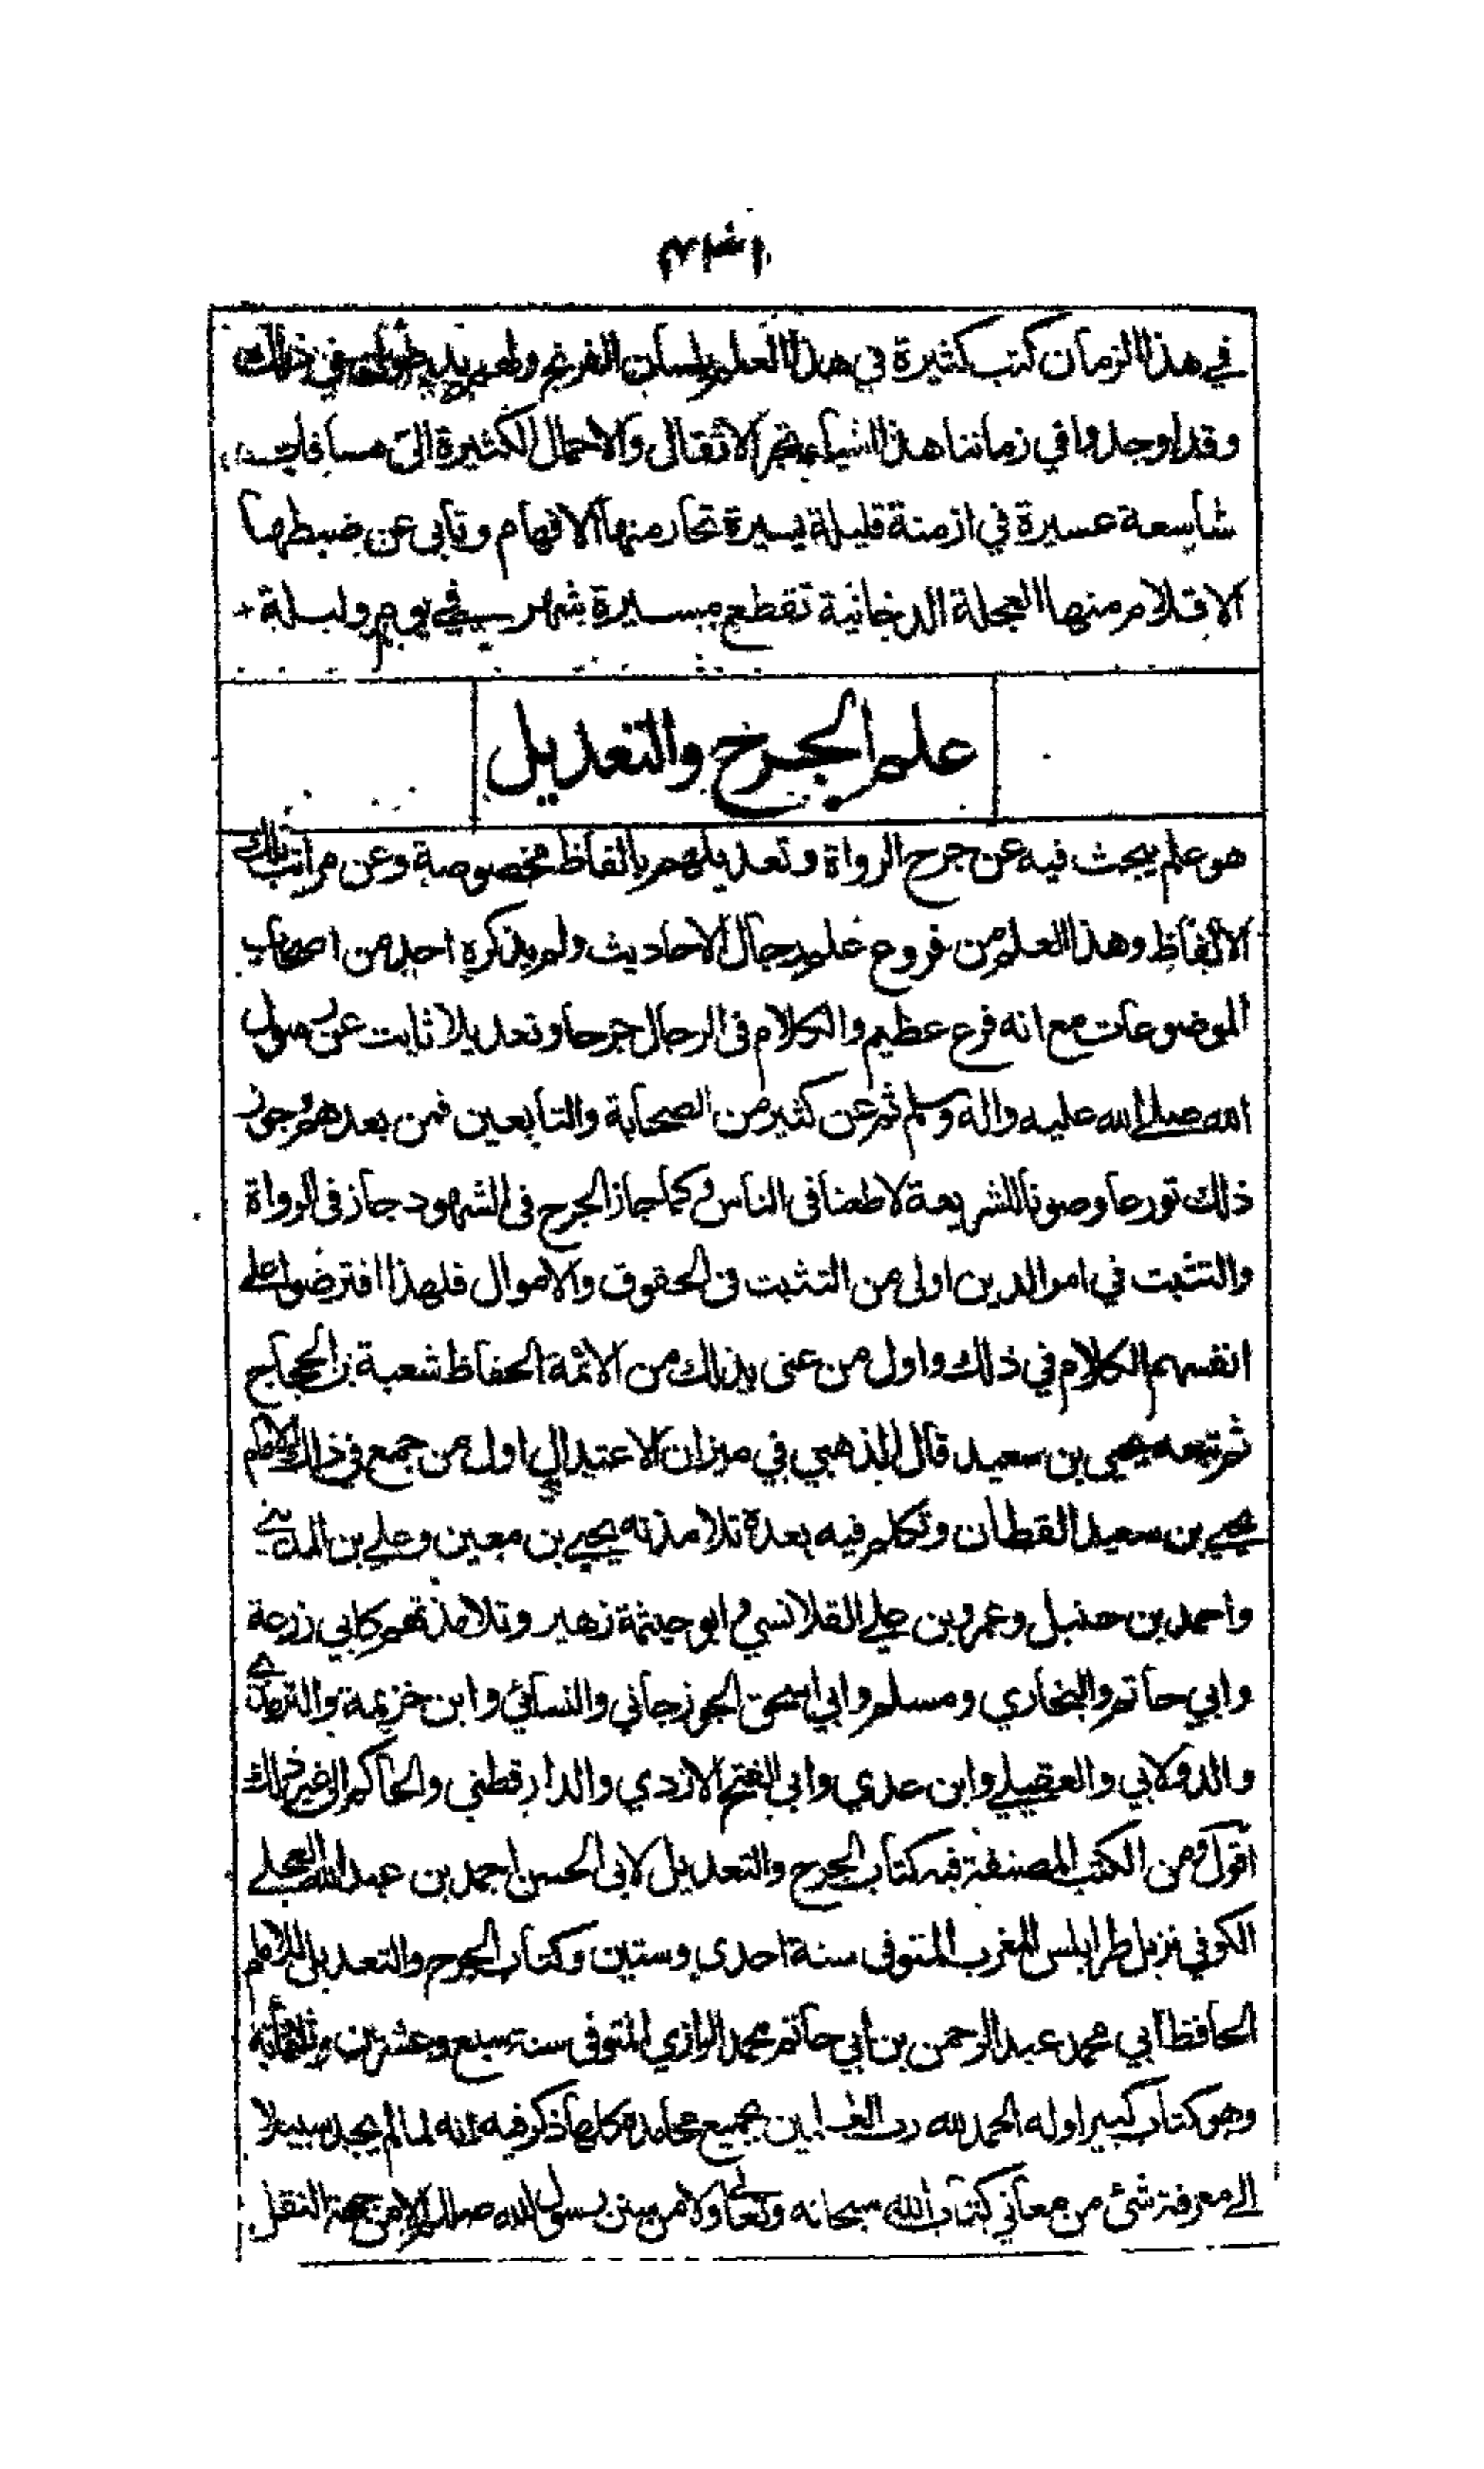 في هذا الزمان كتب كثيرة في هذا العلم بلسان الفرنج ولهم يد طولى في ذلك
وقد اوجدوا في زماننا هذا اشياء لجر الاثقال والاحمال الكثيرة الى مسافات
شاسعة عسيرة في ازمنة قليلة يسيرة تحار منها الافهام وتابى عن ضبطها
الاقلام منها العجلة الدخانية تقطع مسيرة شهر في يوم وليلة
علم الجرح والتعديل
هو علم يبحث فيه عن جرح الرواة وتعديلهم بالفاظ مخصوصة وعن مراتب تلك
الالفاظ وهذا العلم من فروع علم رجال الاحاديث ولم يذكره احد من اصحاب
الموضوعات مع انه فرع عظيم والكلام في الرجال جرحا وتعديلا ثابت عن رسول
الله صلى الله عليه واله وسلم ثم عن كثير من الصحابة والتابعين فمن بعدهم وجوز
ذلك تورعا وصونا للشريعة لا طعنا في الناس وكما جاز الجرح في الشهود جاز في الرواة
والتثبت في امر الدين اولى من التثبت في الحقوق والاموال فلهذا افترضوا على
انفسهم الكلام في ذلك واول من عنى بذلك من الائمة الحفاظ شعبة بن الحجاج
ثم تبعه يحيى بن سعيد قال الذهبي في ميزان الاعتدال اول من جمع في ذلك الامام
يحيى بن سعيد القطان وتكلم فيه بعده تلامذته يحيى بن معين وعلي بن المديني
واحمد بن حنبل وعمرو بن علي القلانسي وابو خيثمة زهير وتلامذتهم كابي زرعة
وابي حاتم والبخاري ومسلم وابي اسحق الجوزجاني والنسائي وابن خزيمة والترمذي
والدولابي والعقيلي وابن عدي وابي الفتح الازدي والدارقطني والحاكم الى غير ذلك
اقول ومن الكتب المصنفة فيه كتاب الجرح والتعديل لابي الحسن احمد بن عبد الله العجلي
الكوفي نزيل طرابلس المغرب المتوفى سنة احدى وستين وكتاب الجرح والتعديل للامام
الحافظ ابي محمد عبد الرحمن بن ابي حاتم محمد الرازي المتوفى سنة سبع وعشرين وثلثمائة
وهو كتاب كبير اوله الحمد لله رب العالمين بجميع محامده كلها ذكر فيه انه لما لم يجد سبيلا
الى معرفة شئ من معاني كتاب الله سبحانه وتعالى ولا من سنن رسول الله صللم الا من جهة النقل